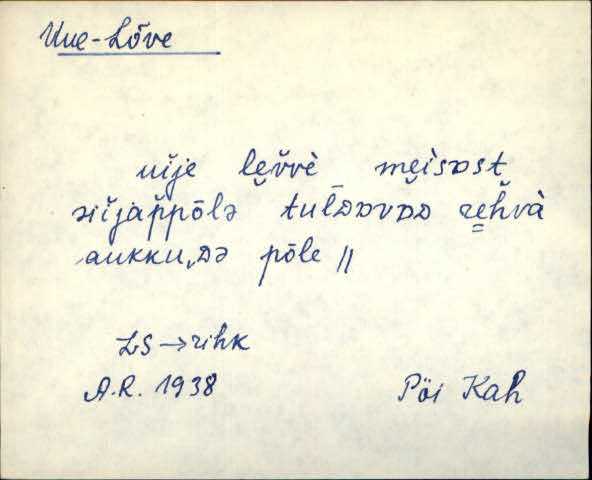 Uue-Lõve
uĭje lĕvvè mĕìsᴅst
siĭjap̆pōlə tulᴅᴅvᴅᴅ rĕh̆và
aukku,ᴅə pōle ||
LS → rihk
A.R. 1938
Pöi Kah